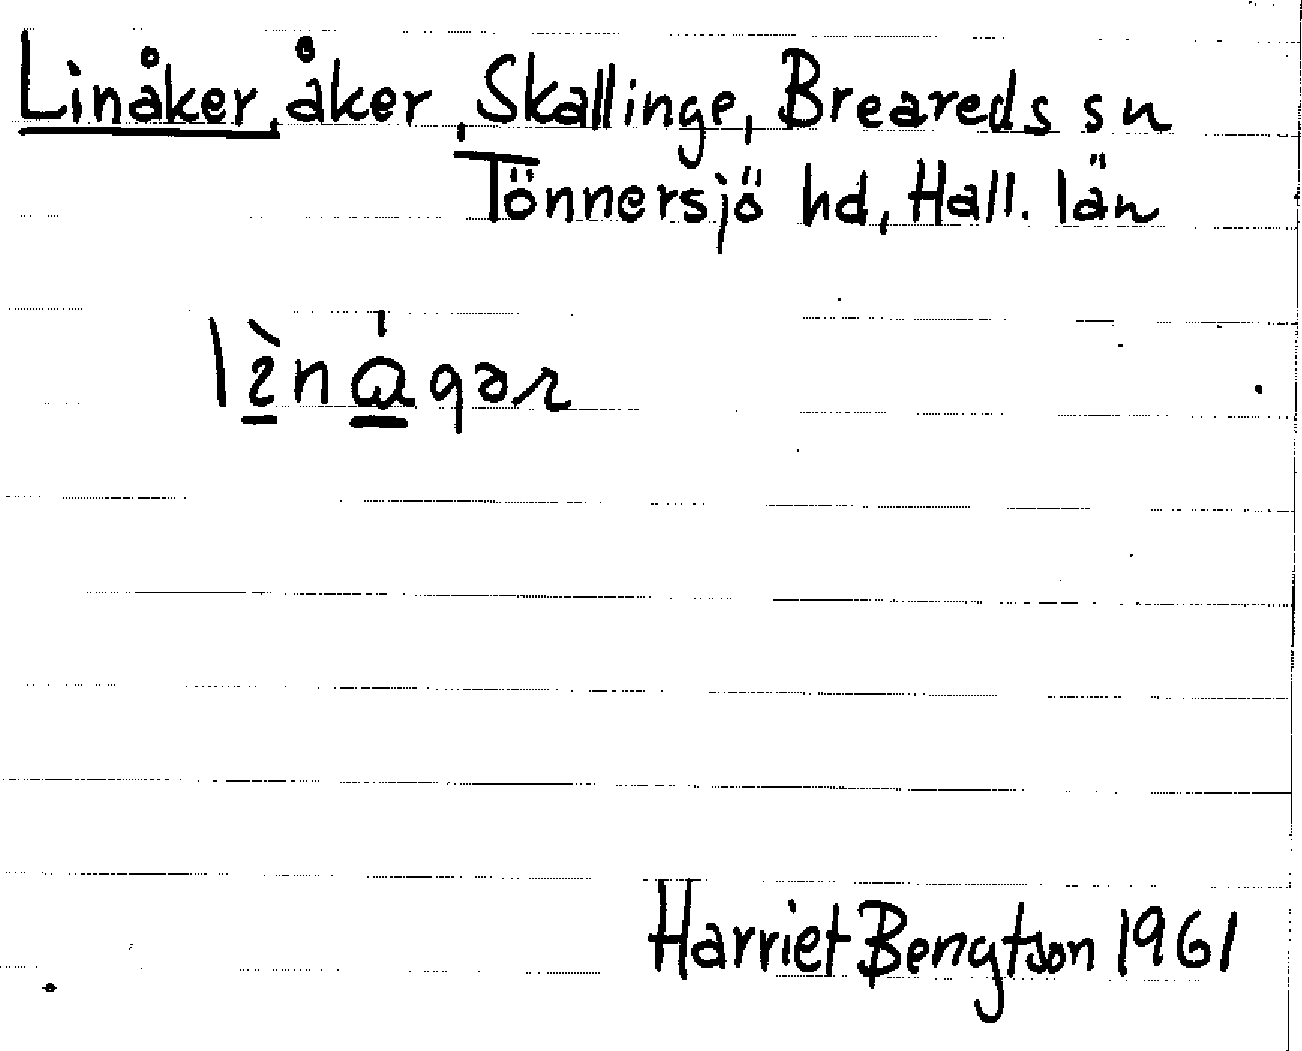 Linåker, åker, Skallinge, Breareds sn
Tönnersjö hd, Hall. län
lìnågər
Harriet Bengtson 1961